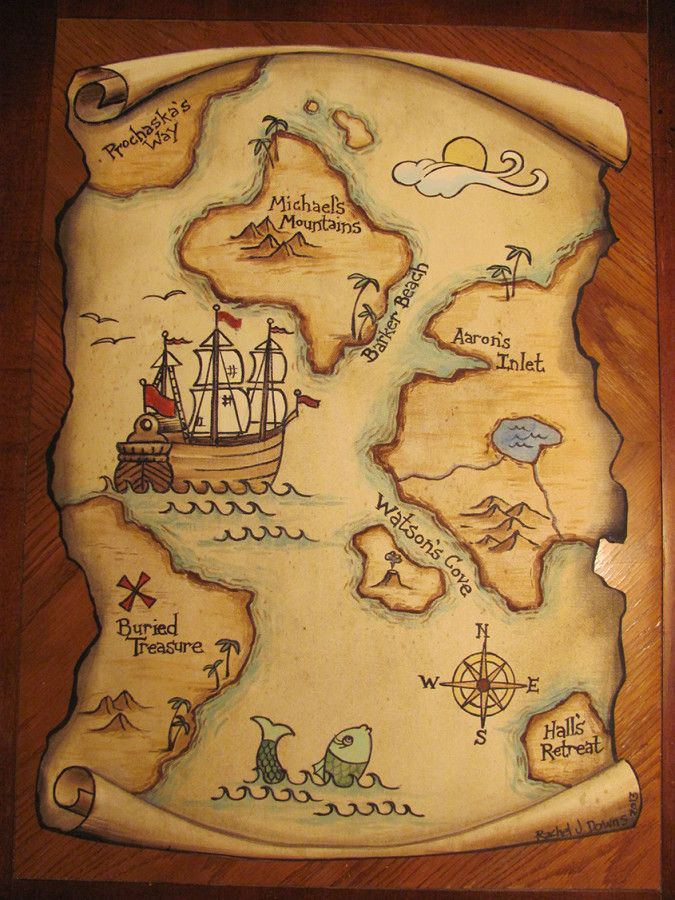 Prochaska's
Way
Michael's
Mountains
Barker Beach
Aaron's
Inlet
Watson's Cove
Buried
Treasure
N
W E
S
Hall's
Retreat
Rachel J Downs 2013